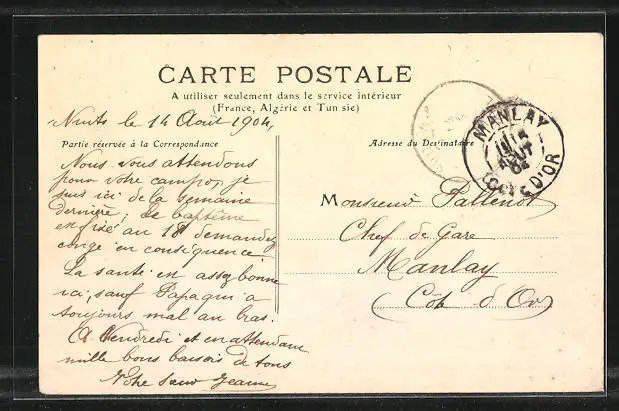 CARTE POSTALE
A utiliser seulement dans le service intérieur
(France, Algérie et Tunisie)
Nuits le 14 Août 1904,
Partie réservée à la Correspondance
Adresse du Destinataire
MANLAY
COTE D'OR
Nous vous attendons
pour votre je
suis ici de la semaine
dernière, le baptême
est fixé au 18 demandez
congé en conséquence.
La santé est assez bonne
ici, sauf Papa qui a
toujours mal au bras.
A Vendredi et en attendant
mille bons baisers de tous
Votre sœur Jeanne
Monsieur Pallenot
Chef de Gare
Manlay
(Cote d'Or)